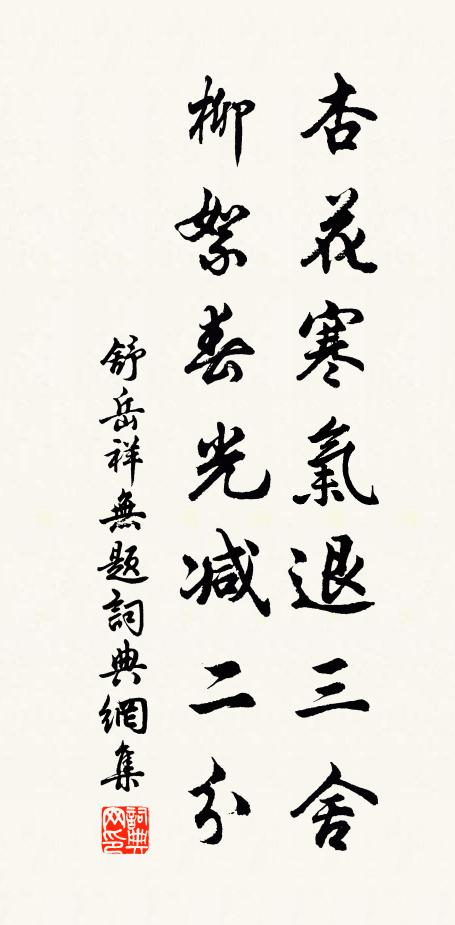 杏花寒氣退三舍
柳絮春光减二分
舒岳祥無题詞典網集
詞典网印